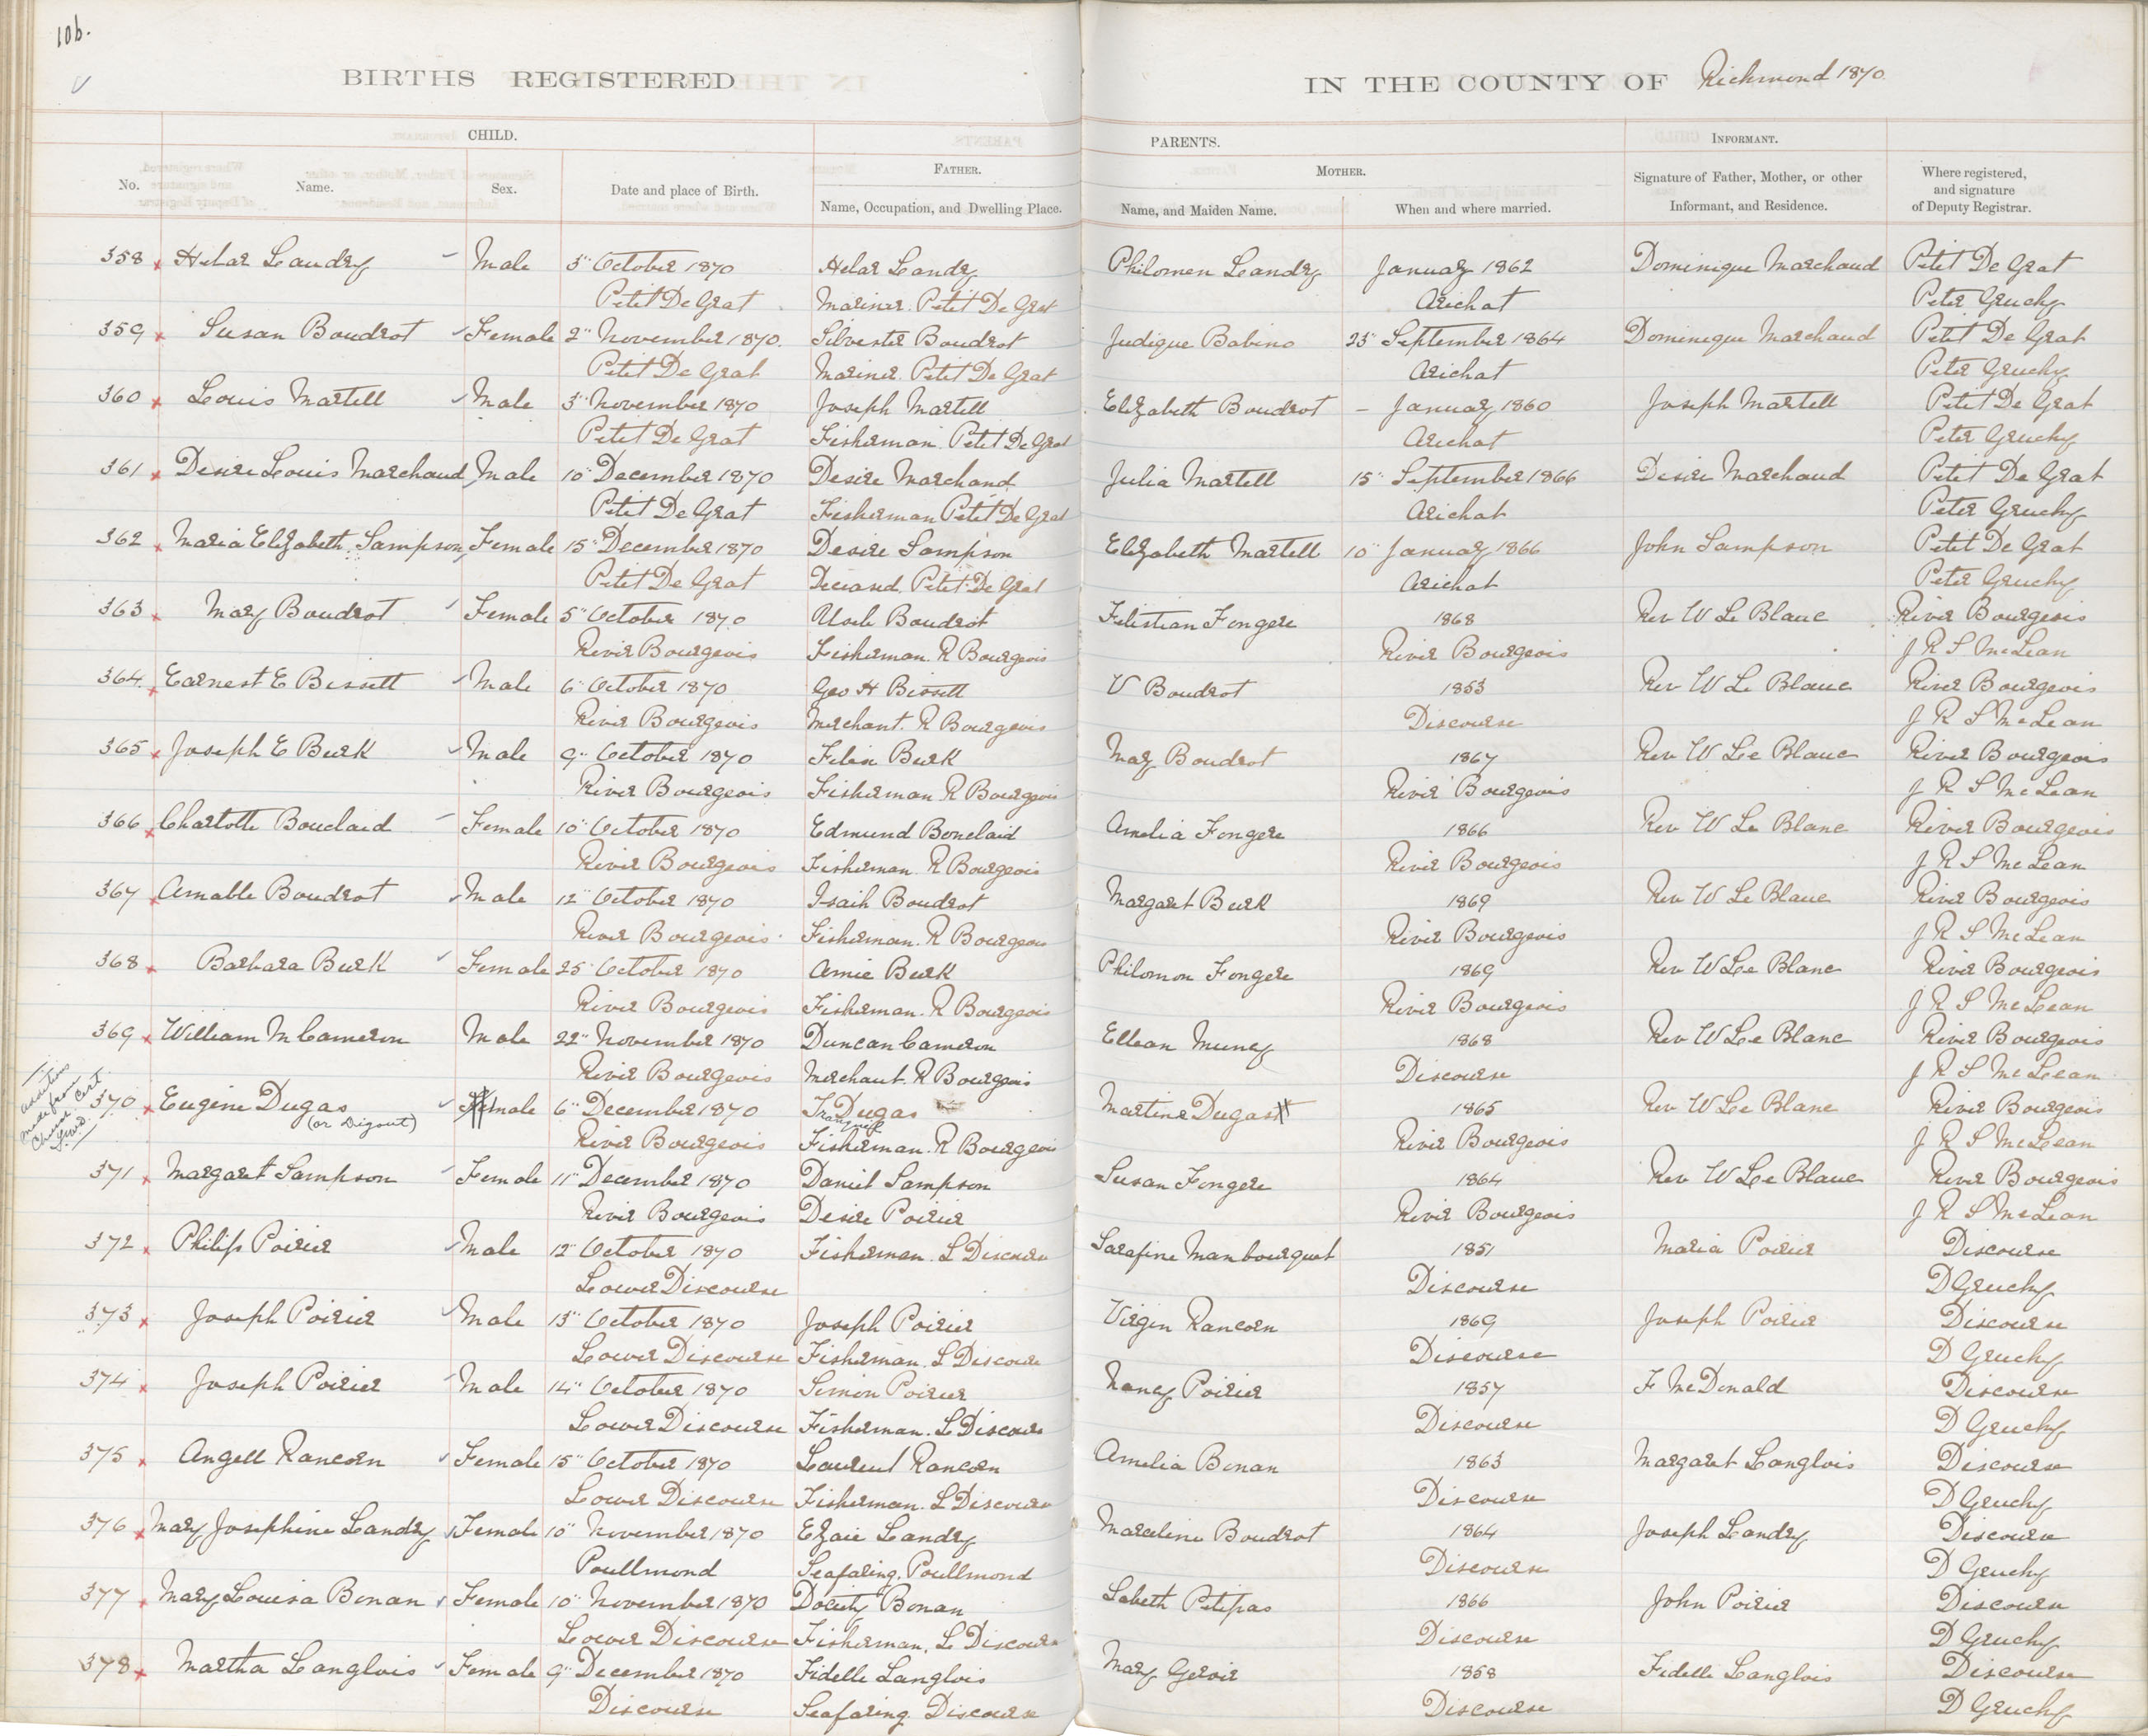 106.
BIRTHS REGISTERED IN THE COUNTY OF Richmond 1870.
CHILD. PARENTS. INFORMANT.
No. Name. Sex. Date and place of Birth. FATHER. Name, Occupation, and Dwelling Place. MOTHER. Name, and Maiden Name. When and where married. Signature of Father, Mother, or other Informant, and Residence. Where registered, and signature of Deputy Registrar.
358 Helar Landry Male 3" October 1870 Helar Landry Philomen Landry January 1862 Dominique Marchaud Petit De Grat
Petit De Grat Mariner. Petit De Grat Arichat Peter Gruchy
359 Susan Boudrot Female 2" November 1870. Silvester Boudrot Judique Babino 23" September 1864 Dominique Marchaud Petit De Grat
Petit De Grat Mariner. Petit De Grat Arichat Peter Gruchy
360 Louis Martell Male 3" November 1870 Joseph Martell Elizabeth Boudrot - January 1860 Joseph Martell Petit De Grat
Petit De Grat Fisherman. Petit De Grat Arichat Peter Gruchy
361 Desire Louis Marchaud Male 10" December 1870 Desire Marchand Julia Martell 15" September 1866 Desire Marchaud Petit De Grat
Petit De Grat Fisherman Petit De Grat Arichat Peter Gruchy
362 Maria Elizabeth Sampson Female 15" December 1870 Desire Sampson Elizabeth Martell 10" January 1866 John Sampson Petit De Grat
Petit De Grat Deceased. Petit De Grat Arichat Peter Gruchy
363 Mary Boudrot Female 5" October 1870 Boudrot Felistian Fongere 1868 Rev W Le Blanc River Bourgeois
River Bourgeois Fisherman. R Bourgeois River Bourgeois J R S McLean
364 Earnest E Bissett Male 6" October 1870 Geo H Bissett V Boudrot 1853 Rev W Le Blanc River Bourgeois
River Bourgeois Merchant. R Bourgeois Discourse J R S McLean
365 Joseph E Burk Male 9" October 1870 Felix Burk Mary Boudrot 1867 Rev W Le Blanc River Bourgeois
River Bourgeois Fisherman R Bourgeois River Bourgeois J R S McLean
366 Charlotte Bouclaid Female 10" October 1870 Edmund Bonclaid Amelia Fongere 1866 Rev W Le Blanc River Bourgeois
River Bourgeois Fisherman. R Bourgeois River Bourgeois J R S McLean
367 Amable Boudrot Male 12" October 1870 Isaih Boudrot Margaret Burk 1869 Rev W Le Blanc River Bourgeois
River Bourgeois Fisherman. R Bourgeois River Bourgeois J R S McLean
368 Barbara Burk Female 25" October 1870 Amie Burk Philomon Fongere 1869 Rev W Le Blanc River Bourgeois
River Bourgeois Fisherman. R Bourgeois River Bourgeois J R S McLean
369 William M Cameron Male 22" November 1870 Duncan Cameron Ellean Muncy 1868 Rev W Le Blanc River Bourgeois
River Bourgeois Merchant. R Bourgeois Discourse J R S McLean
additions made from Church Cert.
370 Eugine Dugas (or Digout) male 6" December 1870 Tranquil Dugas Martine Dugas 1865 Rev W Le Blanc River Bourgeois
River Bourgeois Fisherman. R Bourgeois River Bourgeois J R S McLean
371 Margaret Sampson Female 11" December 1870 Daniel Sampson Susan Fongere 1864 Rev W Le Blanc River Bourgeois
River Bourgeois Desire Poirier River Bourgeois J R S McLean
372 Philip Poirier Male 12" October 1870 Fisherman. L Discourse Sarafine Manbourquet 1851 Maria Poirier Discourse
Lower Discourse Discourse D Gruchy
373 Joseph Poirier Male 13" October 1870 Joseph Poirier Virgin Rancorn 1869 Joseph Poirier Discourse
Lower Discourse Fisherman. L Discourse Discourse D Gruchy
374 Joseph Poirier Male 14" October 1870 Simon Poirier Nancy Poirier 1857 F McDonald Discourse
Lower Discourse Fisherman. L Discourse Discourse D Gruchy
375 Angell Rancorn Female 15" October 1870 Laurent Rancorn Amelia Bonan 1863 Margaret Langlois Discourse
Lower Discourse Fisherman. L Discourse Discourse D Gruchy
376 Mary Josephine Landry Female 10" November 1870 Ezaie Landry Marceline Boudrot 1864 Joseph Landry Discourse
Poullmond Seafaring. Poullmond Discourse D Gruchy
377 Mary Louisa Bonan Female 10" November 1870 Docity Bonan Labeth Petipas 1866 John Poirier Discourse
Lower Discourse Fisherman. L Discourse Discourse D Gruchy
378 Martha Langlois Female 9" December 1870 Fidelle Langlois Mary Gervir 1858 Fidelle Langlois Discourse
Discourse Seafaring. Discourse Discourse D Gruchy